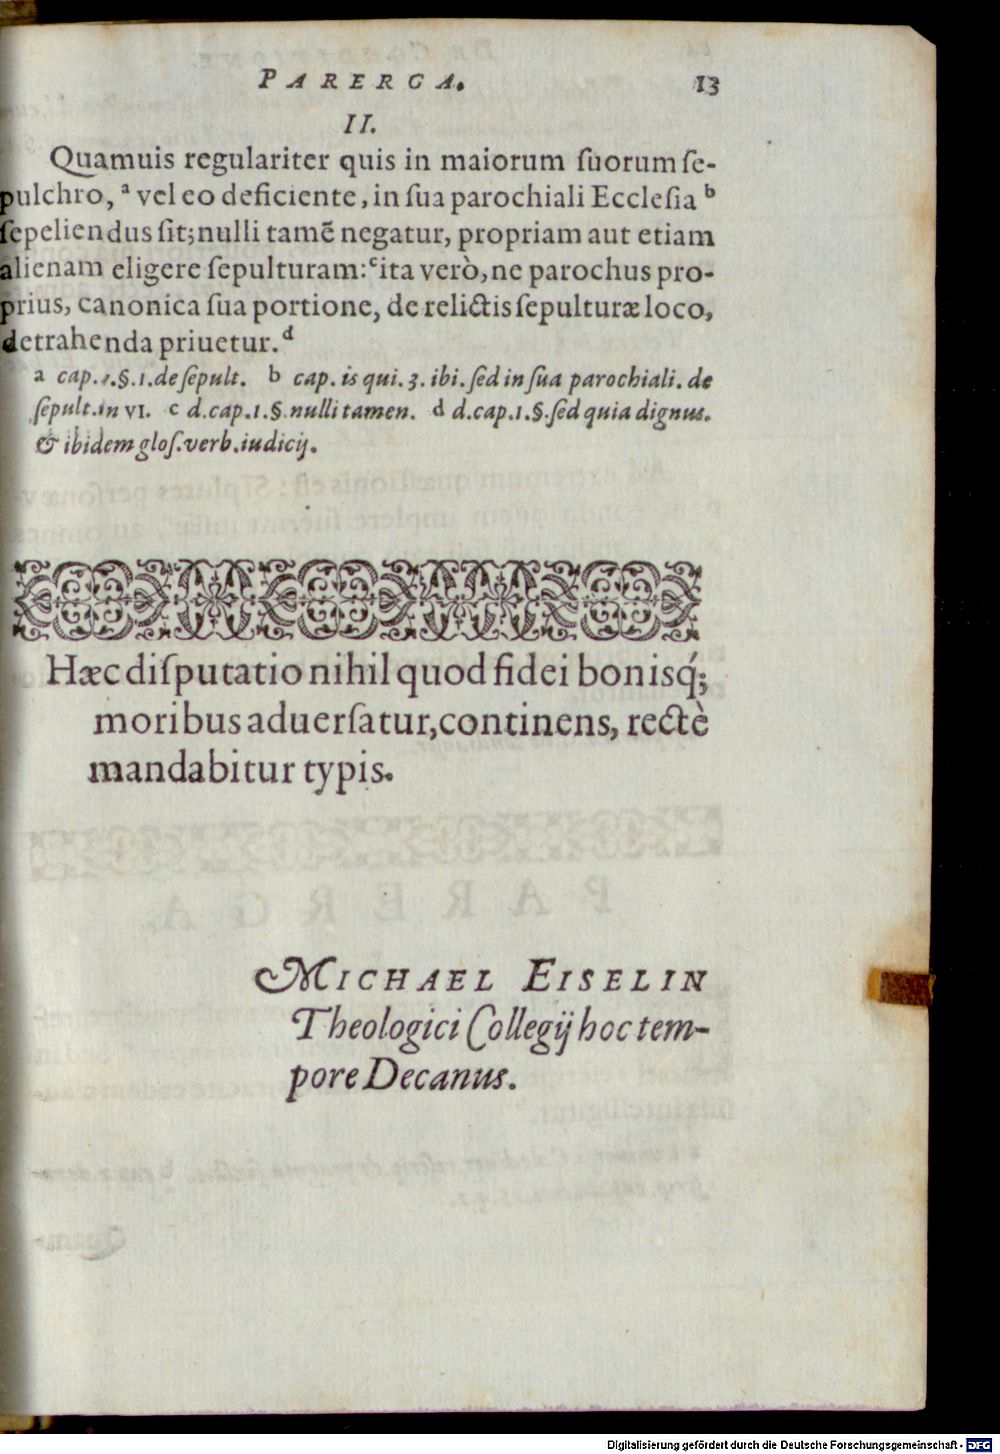 PARERGA. 13
II.
Quamuis regulariter quis in maiorum ſuorum ſe-
pulchro, ᵃ vel eo deficiente, in ſua parochiali Eccleſia ᵇ
ſepeliendus ſit; nulli tamē negatur, propriam aut etiam
alienam eligere ſepulturam:ᶜ ita verò, ne parochus pro-
prius, canonica ſua portione, de relictis ſepulturæ loco,
detrahenda priuetur.ᵈ
a cap.1.§.1.de ſepult. b cap. is qui. 3. ibi. ſed in ſua parochiali. de
ſepult. in VI. c d.cap.1.§. nulli tamen. d d.cap.1.§. ſed quia dignus.
& ibidem gloſ. verb. iudicij.
Hæc diſputatio nihil quod fidei bonisq́;
moribus aduerſatur, continens, rectè
mandabitur typis.
MICHAEL EISELIN
Theologici Collegij hoc tem-
pore Decanus.
Digitalisierung gefördert durch die Deutsche Forschungsgemeinschaft - DFG